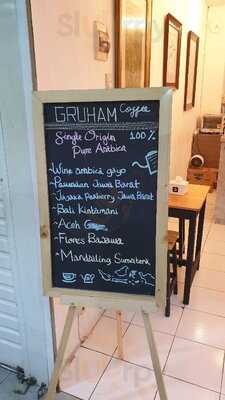 GRUHAM Coffee
Single Origin 100 %
Pure Arabica
~ Wine arabica gayo
~ Pasundan Jawa Barat
~ Java Peaberry Jawa Barat
~ Bali Kintamani
~ Aceh
~ Flores Bajawa
~ Mandailing Sumatera